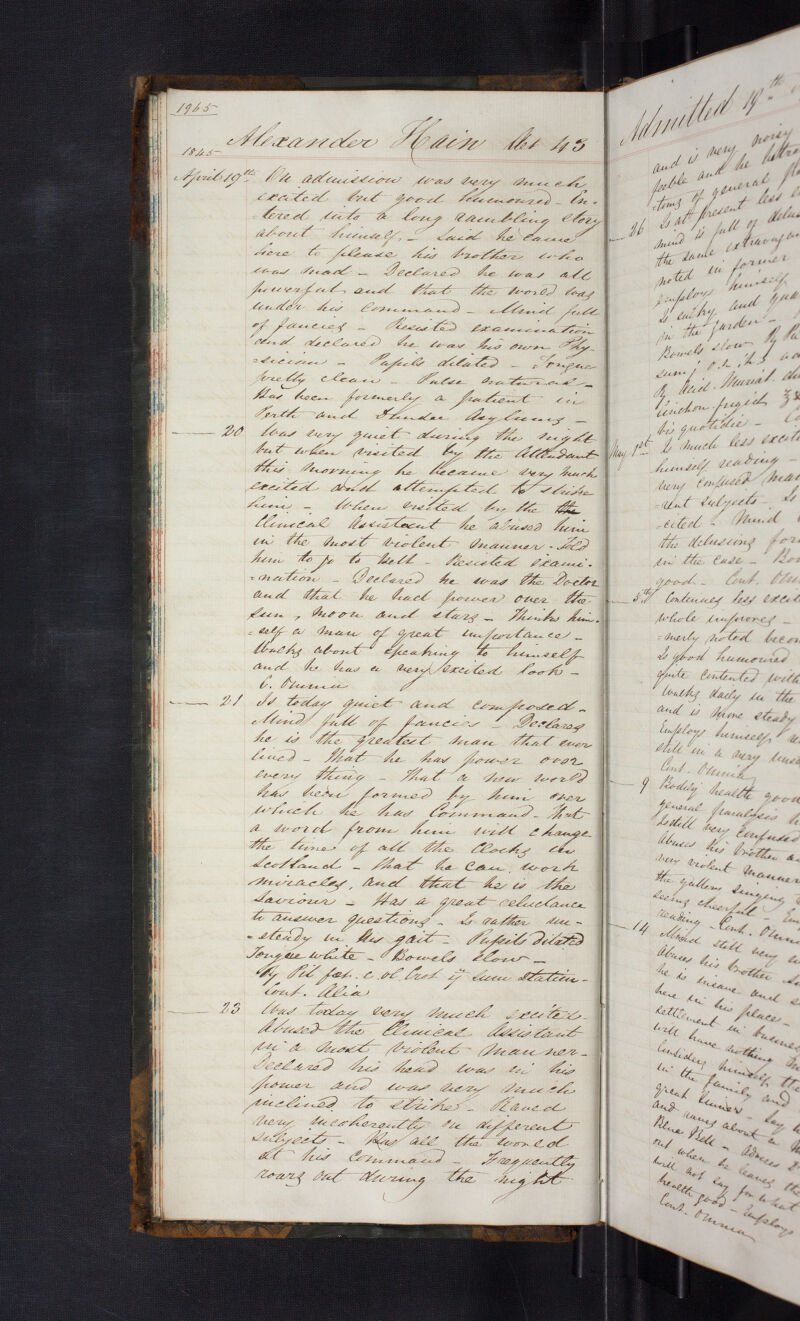 1965
Alexander Hain Aet 43
1845
April 19th On admission was very much
excited but good humoured - En-
tered into a long rambling story
about himself. - Said he came
here to please his brother who
was mad - Declared he was all
powerful and that the world was
under his command - Mind full
of fancies - Resisted examination
and declared he was his own Phy-
=sician - Pupils dilated - Tongue
pretty clean - Pulse natural -
Has been formerly a patient in
Perth and Dundee Asylums -
20 Was very quiet during the night
but when visited by the Attendant
this morning he became very much
excited and attempted to strike
him - When visited by the the
Clinical Assistant he abused him
in the most violent manner. Told
him to go to hell - Resisted exami-
=nation - Declared he was the Doctor
and that he had power over the
sun, moon and stars - Thinks him-
=self a man of great importance -
Walks about speaking to himself
and he has a very excited look -
C. Omnia
21 Is today quiet and composed -
Mind full of fancies - Declares
he is the greatest man that ever
lived - That he has power over
every thing - That a new world
has been formed by him over
which he has Command - That
a word from him will change
the time of all the Clocks in
Scotland - that he can work
miracles, and that he is the
Saviour - Has a great reluctance
to answer questions - Is rather un-
=steady in his gait - Pupils dilated
Tongue white - Bowels slow -
Pil c ol Crot ij Sum statim -
Cont. Alia
23 Was today very much excited -
Abused the Clinical Assistant
in a most violent manner -
Declared his head was in his
power and was very much
inclined to strike - Raved
very incoherently on different
subjects - Has all the world
at his command - Frequently
roars out during the night
Admitted 19th
and is very noisy
feeble and he
=toms of general
26 Is at present less
mind is full of
the same
noted in former
employs himself
Is sulky and
in the garden -
Bowels slow
Acid. Muriat.
bis quotidie -
May 1st Is much less
himself reading -
very confused
=rent subjects -
=cited - Mind
the delusions
in the case -
good - Cont.
5th Continues less
whole improves -
=merly noted
Is good humoured
quite contented
walks daily in the
and is more steady
Employs himself
still in a very
Cont. Omnia
9 Bodily health good
general paralysis
Is still very confused
Abuses his brother
very violent manner
the gallery singing
seems cheerful -
reading - Cont.
14 Mind still very
Abuses his brother
he is insane and
here in his place -
settlement in
will have nothing
Considers himself the
in the family and
great
and about
Blue Bell -
out when he leaves the
will not say for what
health good - Employs
Cont. Omnia